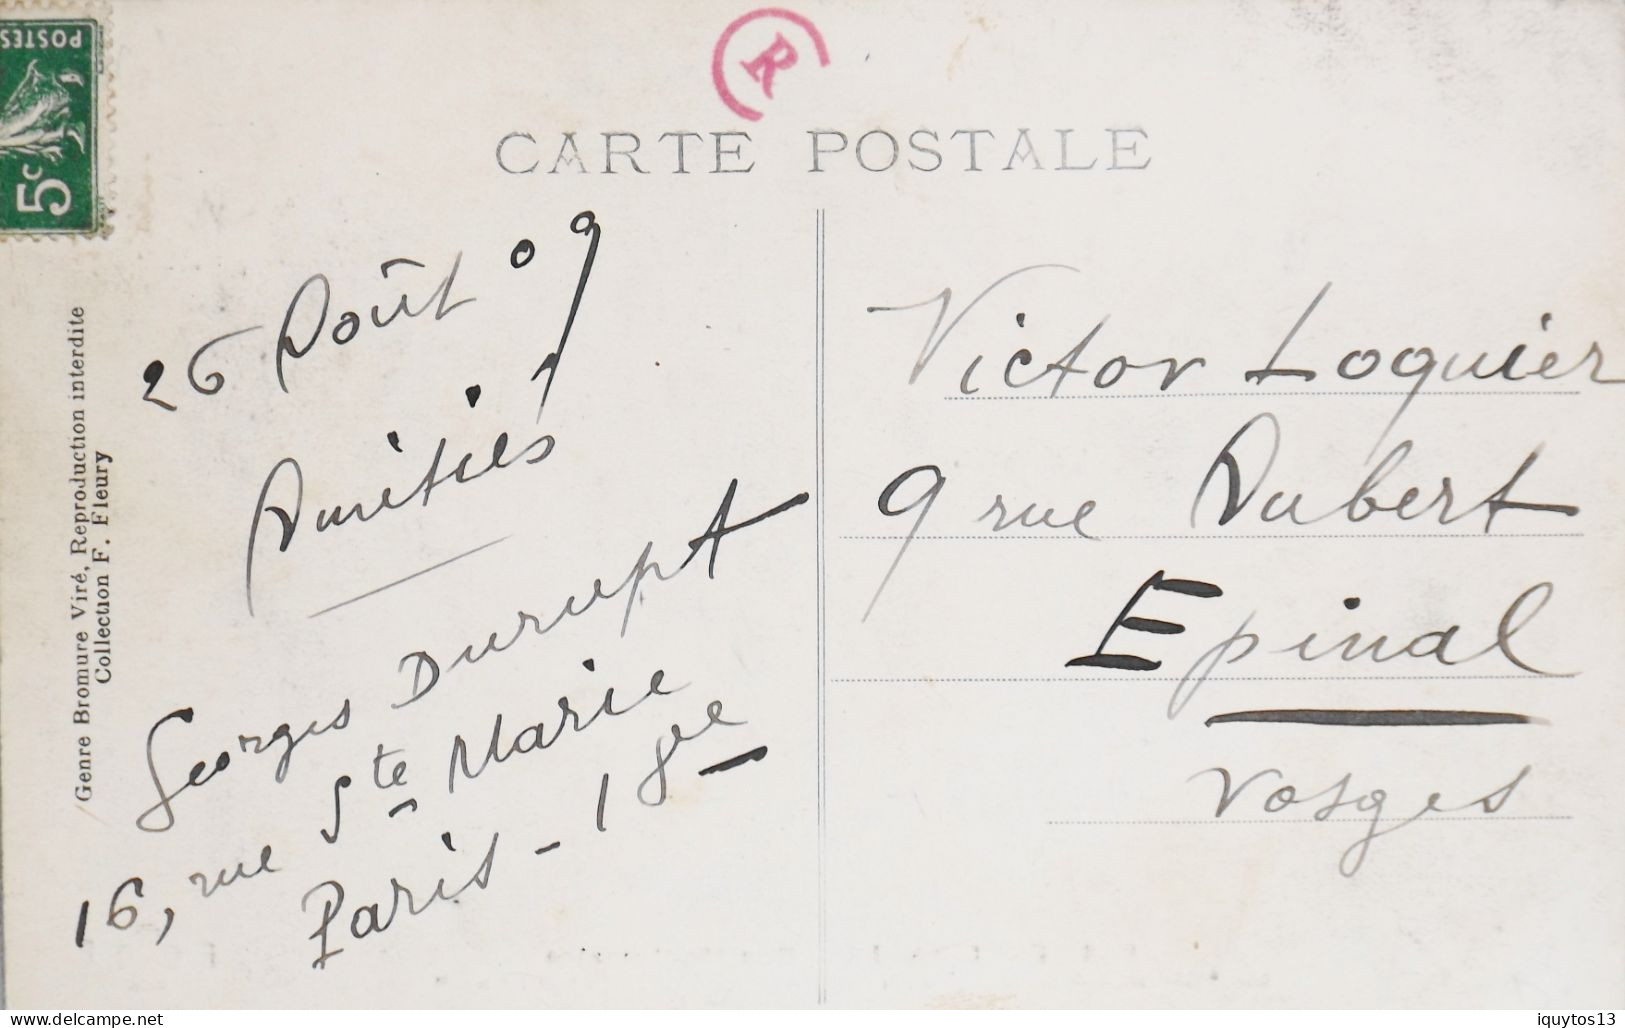 POSTES
5c
R
CARTE POSTALE
Genre Bromure Viré, Reproduction interdite
Collection F. Fleury
26 Août 09
Amitiés
Georges Durupt
16, rue Ste Marie
Paris - 18e
Victor Loquier
9 rue Aubert
Epinal
Vosges
delcampe.net
iquytos13